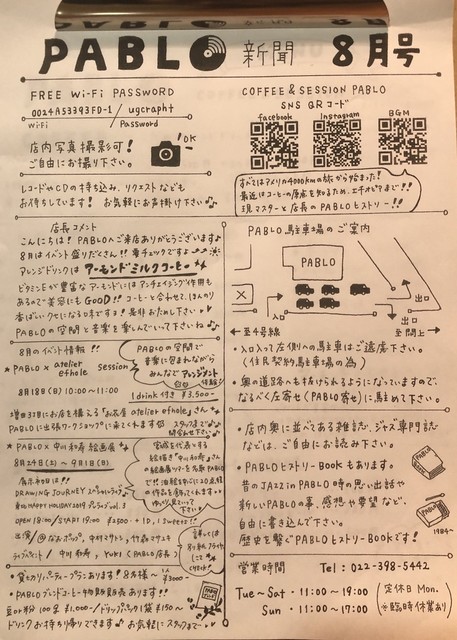 PABLO 新聞 8月号
FREE Wi-Fi PASSWORD
0024A53393FD-1 / ugcrapht
WiFi / Password
店内写真撮影可!
ご自由にお撮り下さい。
OK
レコードやCDの持ち込み、リクエストなども
お待ちしています! お気軽にお声掛け下さい
店長コメント
こんにちは! PABLOへご来店ありがとうございます
8月はイベント盛りだくさん!! 要チェックですよ
アレンジドリンクは アーモンドミルクコーヒー
ビタミンEが豊富なアーモンドにはアンチエイジング作用も
あるので美容にもGOOD!! コーヒーと合わせて、ほんのり
香ばしいクセになる口当たりです! 是非お試し下さい
PABLOの空間と音楽も楽しんでいって下さいね
8月のイベント情報!!
PABLO × atelier efhole session
PABLOの空間で
音楽に包まれながら
みんなでアレンジメント
8月18日(日) 10:00~11:00
1drink付き ¥3,500-
増田3丁目にお店を構える「お花屋 atelier efhole」さん
PABLOに出張ワークショップに来てくれます
PABLO × 中川和寿 絵画展
8月24日(土) ~ 9月1日(日)
展示初日は!!
DRAWING JOURNEY スペシャルライブ
HAPPY HOLIDAY 2019 プレライブ vol. 3
OPEN 18:00 / START 19:00 ¥2500 +1D, 1sweets!!
ライブペイント / 中川和寿, YUKI (PABLO店長)
貸切りパーティープランあります! 8名様~ 1人¥3000-
PABLOブレンドコーヒー物販発売あります!!
豆or粉 100g ¥1,000- / ドリップバック1袋 ¥150~
ドリンクお持ち帰りできます お気軽にスタッフまで
COFFEE & SESSION PABLO
SNS QRコード
facebook Instagram BGM
すべてはアメリカ4000kmの旅から始まった!
最近はコーヒーの原点を知るため、エチオピアまで!!
現マスターと店長のPABLOヒストリー!!
PABLO駐車場のご案内
PABLO
出口
入口
←至4号線
→至閖上
・入口入って左側への駐車はご遠慮下さい。
(住民契約駐車場の為)
・奥の道路へも抜けられるようになっていますので、
なるべく左寄せ(PABLO寄せ)に駐めて下さい。
・店内奥に並べてある雑誌、ジャズ専門誌
などは、ご自由にお読み下さい。
・PABLOヒストリーBOOKもあります。
昔のJAZZ in PABLO時の思い出話や
新しいPABLOの事、感想や要望など、
自由に書き込んで下さい。
歴史を繋ぐPABLOヒストリーBOOKです!
1984~
営業時間 Tel : 022-398-5442
Tue~Sat・11:00~19:00
Sun・11:00~17:00
定休日 Mon.
※臨時休業あり